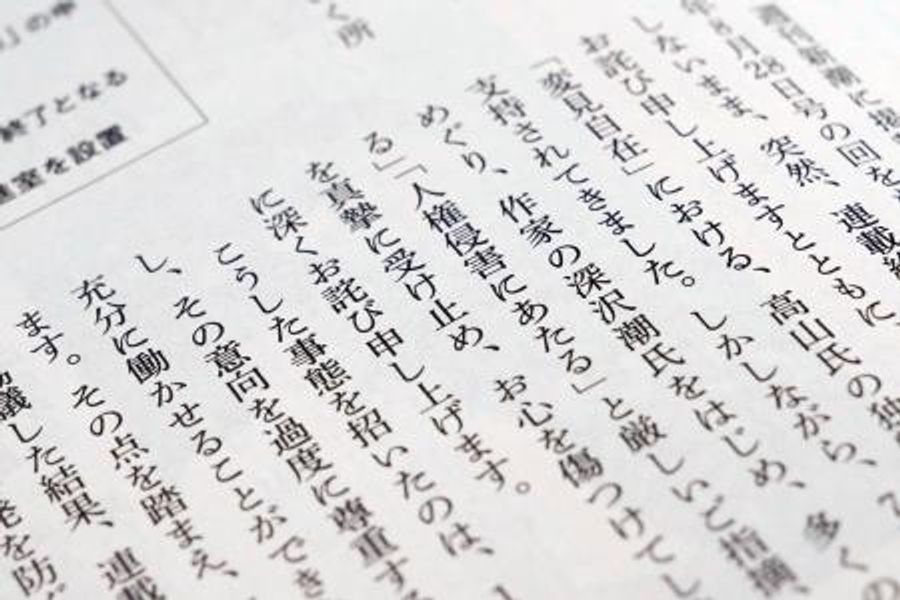 週刊新潮に掲
年8月28日号の回を
しないまま、突然、連載終
お詫び申し上げますとともに、
「変見自在」における、高山氏の独
支持されてきました。しかしながら、
めぐり、作家の深沢潮氏をはじめ、多くの
る」「人権侵害にあたる」と厳しいご指摘、
を真摯に受け止め、お心を傷つけてし
に深くお詫び申し上げます。
こうした事態を招いたのは、
し、その意向を過度に尊重する
充分に働かせることができ
ます。その点を踏まえ、
議した結果、連載
発を防
く所
」の中
終了となる
室を設置